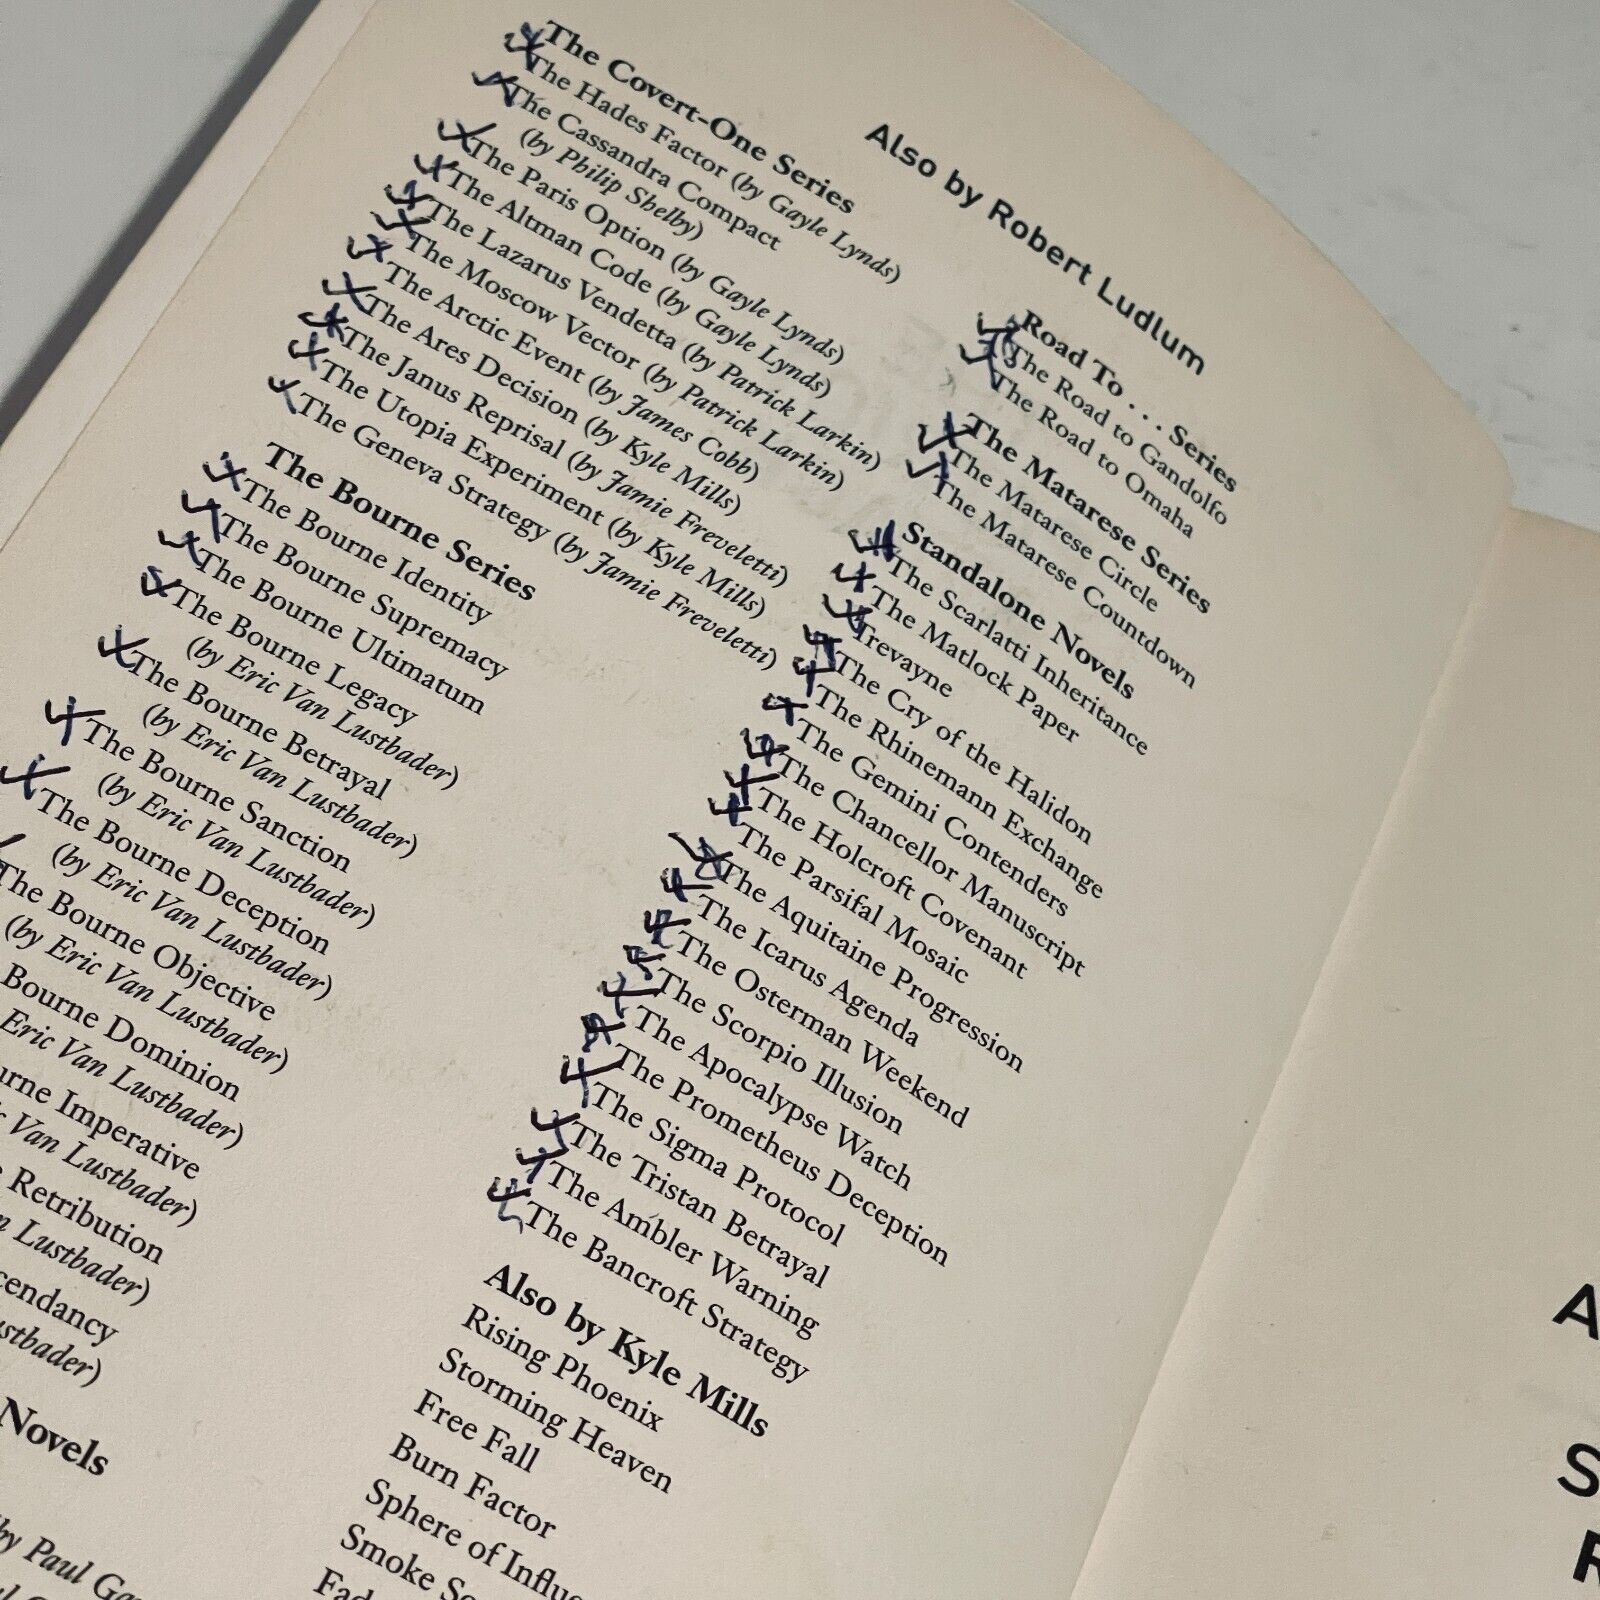 Also by Robert Ludlum
The Covert-One Series
The Hades Factor (by Gayle Lynds)
The Cassandra Compact
(by Philip Shelby)
The Paris Option (by Gayle Lynds)
The Altman Code (by Gayle Lynds)
The Lazarus Vendetta (by Patrick Larkin)
The Moscow Vector (by Patrick Larkin)
The Arctic Event (by James Cobb)
The Ares Decision (by Kyle Mills)
The Janus Reprisal (by Jamie Freveletti)
The Utopia Experiment (by Kyle Mills)
The Geneva Strategy (by Jamie Freveletti)
The Bourne Series
The Bourne Identity
The Bourne Supremacy
The Bourne Ultimatum
The Bourne Legacy
(by Eric Van Lustbader)
The Bourne Betrayal
(by Eric Van Lustbader)
The Bourne Sanction
(by Eric Van Lustbader)
The Bourne Deception
(by Eric Van Lustbader)
The Bourne Objective
(by Eric Van Lustbader)
Bourne Dominion
Eric Van Lustbader)
Imperative
Van Lustbader)
Retribution
Lustbader)
Novels
by Paul
Road To . . . Series
The Road to Gandolfo
The Road to Omaha
The Matarese Series
The Matarese Circle
The Matarese Countdown
Standalone Novels
The Scarlatti Inheritance
The Matlock Paper
Trevayne
The Cry of the Halidon
The Rhinemann Exchange
The Gemini Contenders
The Chancellor Manuscript
The Holcroft Covenant
The Parsifal Mosaic
The Aquitaine Progression
The Icarus Agenda
The Osterman Weekend
The Scorpio Illusion
The Apocalypse Watch
The Prometheus Deception
The Sigma Protocol
The Tristan Betrayal
The Ambler Warning
The Bancroft Strategy
Also by Kyle Mills
Rising Phoenix
Storming Heaven
Free Fall
Burn Factor
Sphere of
Smoke